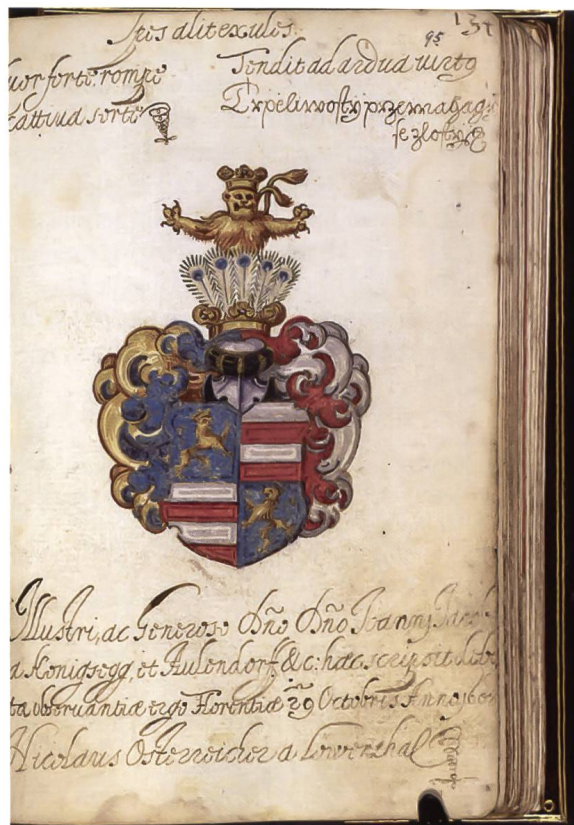 95 157
Spes alit exules.
uor forte rompe
cattiua sorte
Tendit ad ardua uirtꝰ
Trpeliwosty przemahagi
se zlosty
Illustri, ac Generoso Dño Dño Joanni Jacob
a Konigsegg, et Aulendorf &c: hæc scripsit debi
ta obseruantiæ ergo Florentiæ 29 Octobris Anno 160
Nicolaus Österreicher a Löwenthal